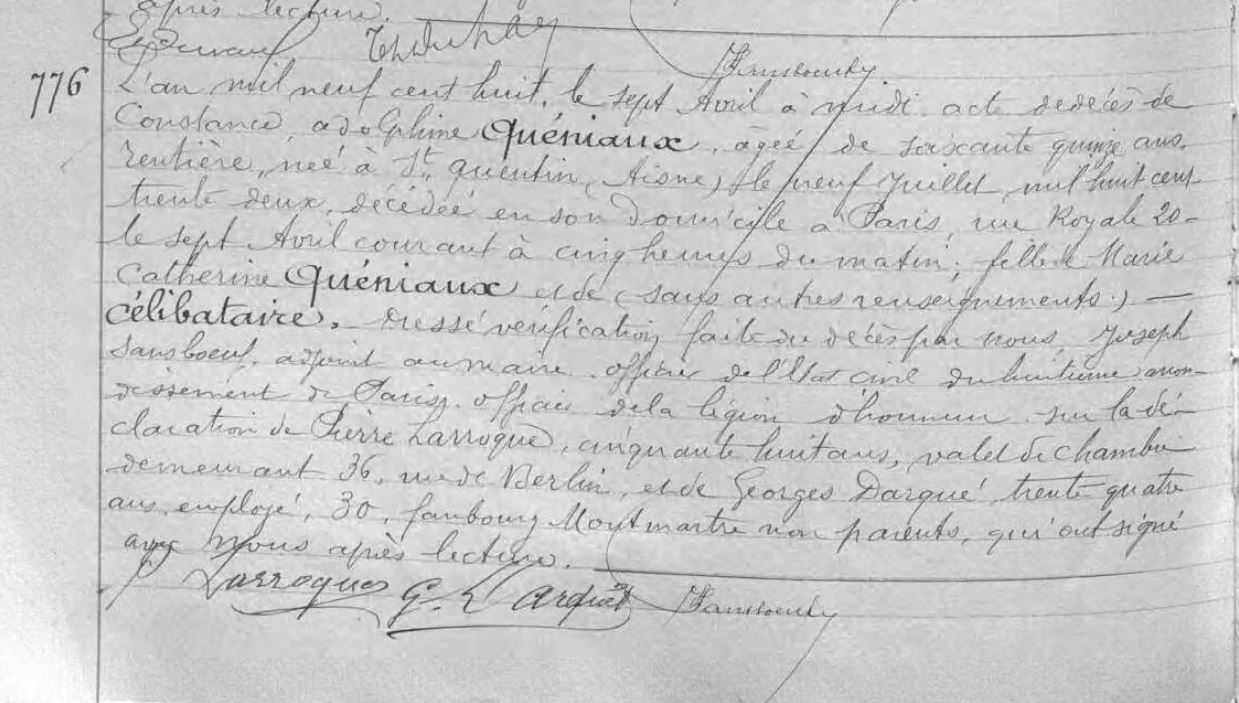 après lecture.
Th Duhay
776
L'an mil neuf cent huit, le sept Avril à midi acte de décès de
Constance, adolphine Quéniaux, âgée de soixante quinze ans.
rentière, née à St. quentin (Aisne) le neuf Juillet mil huit cent
trente deux, décédée en son domicile à Paris, rue Royale 20-
le sept Avril courant à cinq heures du matin; fille de Marie
Catherine Quéniaux et de (sans autres renseignements.) —
célibataire. Dressé vérification faite du décès par nous, Joseph
Sansboeuf, adjoint au maire, officier de l'Etat civil du huitième arron-
dissement de Paris, officier de la légion d'honneur sur la dé-
claration de Pierre Larroque, cinquante huit ans, valet de chambre
demeurant 36, rue de Berlin, et de Georges Darqué, trente quatre
ans, employé, 30, faubourg Montmartre non parents, qui ont signé
avec nous après lecture.
Larroque G. Darqué Sansboeuf